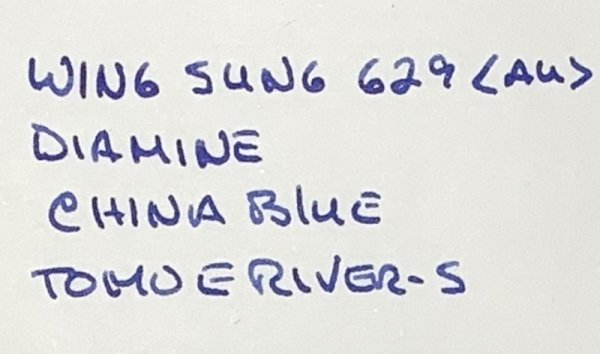 WING SUNG 629 <Au>
DIAMINE
CHINA BluE
TOMOE RIVER-S